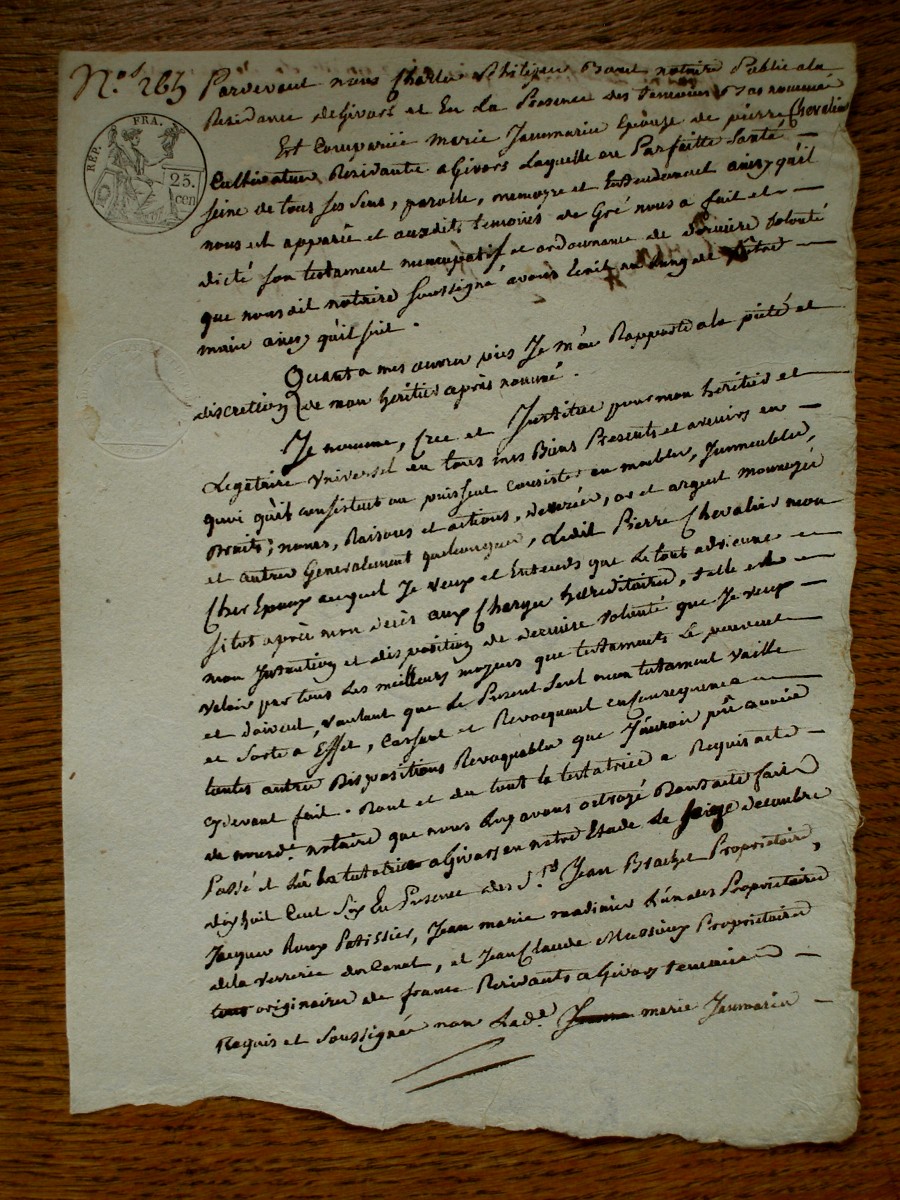 N.os 265 Pardevant nous Charles Philippe notaire Public a la
Residance de Givors et En La Presence des temoins Bas nommés
Est Comparüe marie Jaumarin Epouse de pierre Chevalier
Cultivateur Residante a Givors Laquelle en Parfaitte Santé
seine de tous ses sens, parolle, memoire et Entendement ainsy qu'il
nous est apparû et auxdits temoins de Gré nous a fait et
dicté son testament nuncupatif et ordonnance de derniere volonté
que nous dit notaire soussigné avons Ecrit au long de nôtre
main ainsy qu'il suit.
Quant a mes œuvres pies Je m'en Rapporte a la pieté et
discretion de mon heritier après nommé.
Je nomme, Crée et Institue pour mon heritier et
Legataire Universel en tous mes Biens Presents et avenirs en
quoi qu'ils consistent ou puissent Consister en meubles, Immeubles,
Droits, noms, Raisons et actions, or et argent monnoyé
et autres Generalement quelconques, Ledit Pierre Chevalier mon
Cher Epoux auquel Je veux et Entends que Le tout advienne
sitot après mon decès aux Charges hereditaires, telle est
mon Intention et disposition de derniere volonté que Je veux
valoir par tous Les meilleurs moyens que testaments Le peuvent
et doivent, voulant que Le Present seul mon testament vaille
et Sorte a Effet, Cassant et Revocquant en Consequence
toutes autres Dispositions Revoquables que J'aurois pû avoir
cydevant fait. Dont et du tout la testatrice a Requis acte
de nousd. notaire que nous Luy avons octroyé Dont acte fait
Passé et Lû a la testatrice a Givors en notre Etude Le seize decembre
dix huit Cent Six En Presence des S.rs Jean Brachet Proprietaire,
Jacques Roux Patissier, Jean marie madinier Proprietaire
de la verrerie du Canal, et Jean Claude Proprietaire
tous originaires de france Residants a Givors temoins
Requis et Soussignés non Lad.e Jeanne marie Jaumarin
RÉP. FRA.
25.
cen